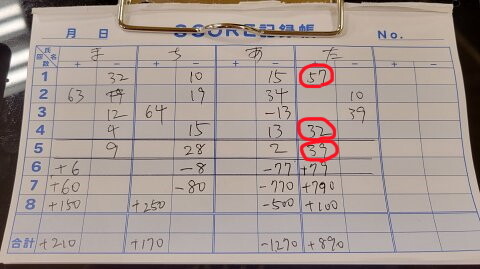 月 日 SCORE記録帳 No.
氏名 回数 ま ち あ た
+ − + − + − + −
1 32 10 15 57
2 63 19 34 10
3 12 64 -13 39
4 4 15 13 32
5 9 28 2 39
6 +6 -8 -77 +79
7 +60 -80 -770 +790
8 +150 +250 -500 +100
合計 +210 +170 -1270 +890